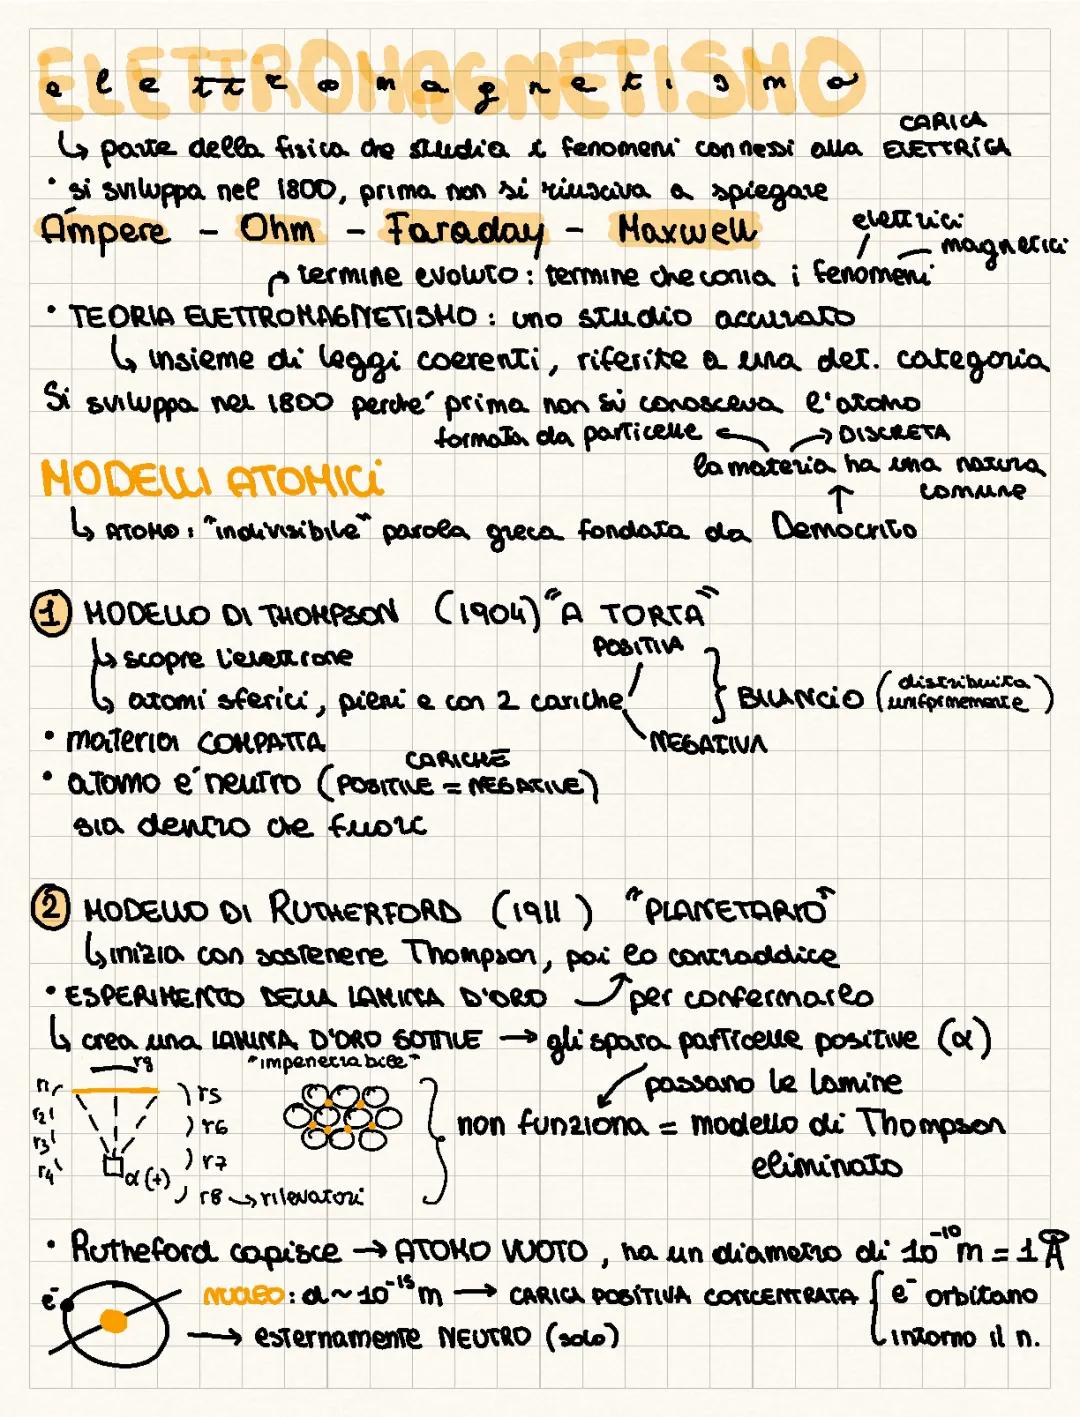 ELETTROMAGNETISMO
elettromagnetismo
CARICA
↳ parte della fisica che studia i fenomeni connessi alla ELETTRICA
• si sviluppa nel 1800, prima non si riusciva a spiegare
Ampere - Ohm - Faraday - Maxwell
elettrici
magnetici
termine evoluto: termine che conia i fenomeni
• TEORIA ELETTROMAGNETISMO: uno studio accurato
↳ insieme di leggi coerenti, riferite a una det. categoria
Si sviluppa nel 1800 perche' prima non si conosceva l'atomo
formata da particelle ← → DISCRETA
MODELLI ATOMICI
la materia ha una natura
comune
↑
↳ ATOMO: "indivisibile" parola greca fondata da Democrito
1 MODELLO DI THOMPSON (1904) "A TORTA"
↳ scopre l'elettrone
POSITIVA
↳ atomi sferici, pieni e con 2 cariche
NEGATIVA
} BILANCIO (distribuita
uniformemente)
• materia COMPATTA
CARICHE
• atomo e' neutro (POSITIVE = NEGATIVE)
sia dentro che fuori
2 MODELLO DI RUTHERFORD (1911) "PLANETARIO"
↳ inizia con sostenere Thompson, poi lo contraddice
• ESPERIMENTO DELLA LAMINA D'ORO per confermarlo
↳ crea una LAMINA D'ORO SOTTILE → gli spara particelle positive (α)
"impenetrabile"
passano le lamine
non funziona = modello di Thompson
eliminato
r9
r1
r2
r3
r4
r5
r6
r7
r8 → rilevatori
α (+)
• Rutheford capisce → ATOMO VUOTO, ha un diametro di 10⁻¹⁰ m = 1 Å
e⁻
NUCLEO: d ~ 10⁻¹⁵ m → CARICA POSITIVA CONCENTRATA { e⁻ orbitano
intorno il n.
→ esternamente NEUTRO (solo)